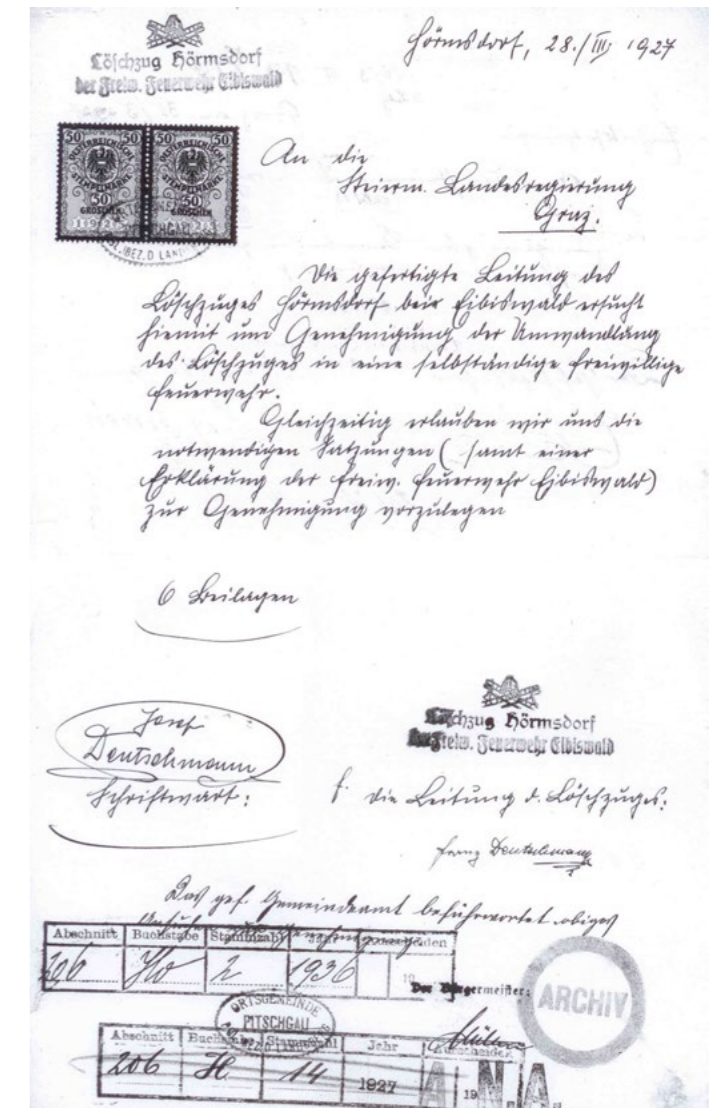 Löschzug Hörmsdorf
der Freiw. Feuerwehr Eibiswald
Hörmsdorf, 28./III. 1927
50 50 50 50
ÖSTERREICHISCHE ÖSTERREICHISCHE
STEMPELMARKE STEMPELMARKE
50 50
GROSCHEN GROSCHEN
An die
Steierm. Landesregierung
Graz.
Die gefertigte Leitung des
Löschzuges Hörmsdorf bei Eibiswald ersucht
hiemit um Genehmigung der Umwandlung
des Löschzuges in eine selbständige freiwillige
Feuerwehr.
Gleichzeitig erlauben wir uns die
notwendigen Satzungen (samt einer
Erklärung der Freiw. Feuerwehr Eibiswald)
zur Genehmigung vorzulegen
6 Beilagen
Josef
Deutschmann
Schriftwart:
Löschzug Hörmsdorf
der Freiw. Feuerwehr Eibiswald
f. die Leitung d. Löschzuges:
Franz Deutschmann
Das gef. Gemeindeamt befürwortet obiges
Abschnitt Buchstabe Stammzahl Jahr
206 Ho 2 1936 19
Der Bürgermeister:
ARCHIV
ORTSGEMEINDE
PITSCHGAU
Abschnitt Stammzahl Jahr Ausscheiden
206 H 14 1927 19